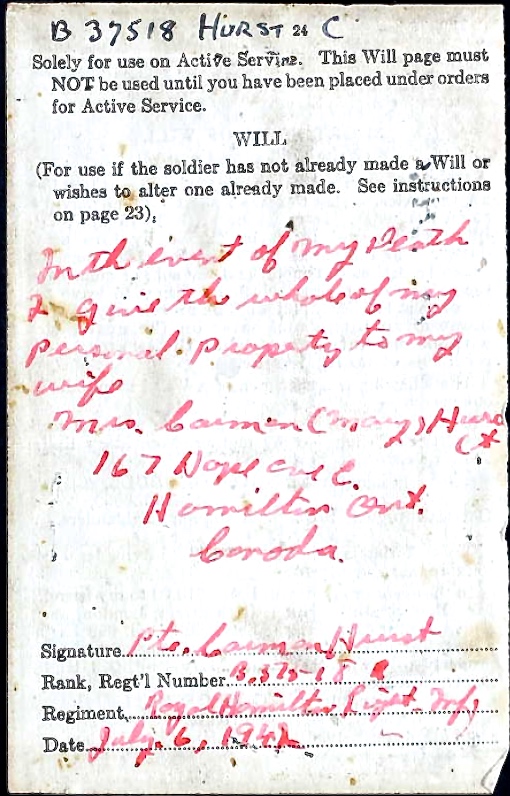 B 37518 HURST 24 C
Solely for use on Active Service. This Will page must
NOT be used until you have been placed under orders
for Active Service.
WILL
(For use if the soldier has not already made a Will or
wishes to alter one already made. See instructions
on page 23).
In th event of my Death
I give the whole of my
personal property to my
wife
Mrs. Carmen (Mary) Hurs
t
167 Hope ave E.
Hamilton Ont.
Canada.
Signature Pte. Carman Hurst
Rank, Regt'l Number B.37518
Regiment Royal Hamilton Light Inf,
Date July. 6, 1942